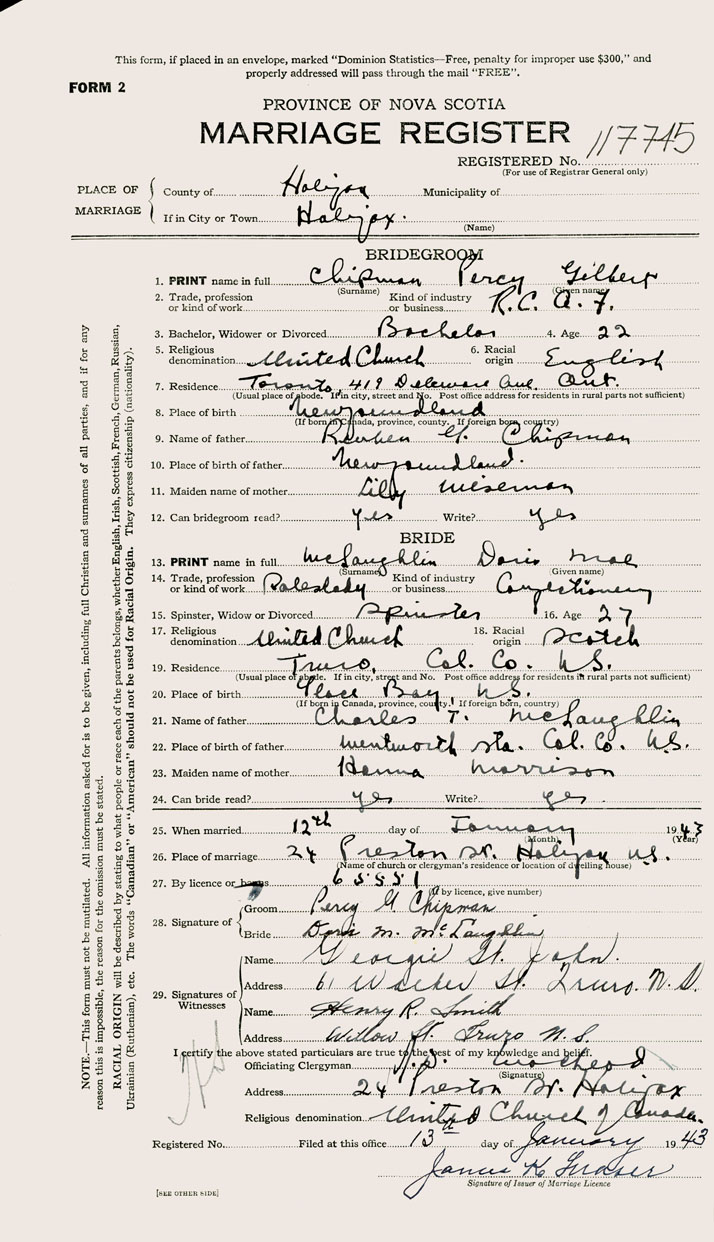 This form, if placed in an envelope, marked “Dominion Statistics—Free, penalty for improper use $300,” and
properly addressed will pass through the mail “FREE”.
FORM 2
PROVINCE OF NOVA SCOTIA
MARRIAGE REGISTER
117745
REGISTERED No.
(For use of Registrar General only)
PLACE OF MARRIAGE
County of Halifax Municipality of
If in City or Town Halifax.
(Name)
BRIDEGROOM
1. PRINT name in full Chipman Percy Gilbert
(Surname) (Given name)
2. Trade, profession or kind of work Kind of industry or business R.C.A.F.
3. Bachelor, Widower or Divorced Bachelor 4. Age 22
5. Religious denomination United Church 6. Racial origin English
7. Residence Toronto, 419 Delaware Ave. Ont.
(Usual place of abode. If in city, street and No. Post office address for residents in rural parts not sufficient)
8. Place of birth Newfoundland
(If born in Canada, province, county. If foreign born, country)
9. Name of father Reuben G. Chipman
10. Place of birth of father Newfoundland.
11. Maiden name of mother Lilly Wiseman
12. Can bridegroom read? yes Write? yes
BRIDE
13. PRINT name in full McLaughlin Doris Mae
(Surname) (Given name)
14. Trade, profession or kind of work Saleslady Kind of industry or business Confectionery
15. Spinster, Widow or Divorced Spinster 16. Age 27
17. Religious denomination United Church 18. Racial origin Scotch
19. Residence Truro, Col. Co. N.S.
(Usual place of abode. If in city, street and No. Post office address for residents in rural parts not sufficient)
20. Place of birth Glace Bay, N.S.
(If born in Canada, province, county. If foreign born, country)
21. Name of father Charles T. McLaughlin
22. Place of birth of father Wentworth Sta. Col. Co. N.S.
23. Maiden name of mother Hanna Morrison
24. Can bride read? yes Write? yes.
25. When married 12th day of January 1943
(Month) (Year)
26. Place of marriage 24 Preston St. Halifax N.S.
(Name of church or clergyman's residence or location of dwelling house)
27. By licence or banns 65551
(If by licence, give number)
28. Signature of
Groom Percy G Chipman
Bride Doris M. McLaughlin
29. Signatures of Witnesses
Name Georgie St. John.
Address 61 Walker St. Truro. N.S.
Name Henry R. Smith
Address Willow St. Truro N.S.
I certify the above stated particulars are true to the best of my knowledge and belief.
Officiating Clergyman
(Signature)
Address 24 Preston St. Halifax
Religious denomination United Church of Canada.
Registered No. Filed at this office 13th day of January 1943
James K Fraser
Signature of Issuer of Marriage Licence
[SEE OTHER SIDE]
NOTE.—This form must not be mutilated. All information asked for is to be given, including full Christian and surnames of all parties, and if for any
reason this is impossible, the reason for the omission must be stated.
RACIAL ORIGIN will be described by stating to what people or race each of the parents belongs, whether English, Irish, Scottish, French, German, Russian,
Ukrainian (Ruthenian), etc. The words “Canadian” or “American” should not be used for Racial Origin. They express citizenship (nationality).